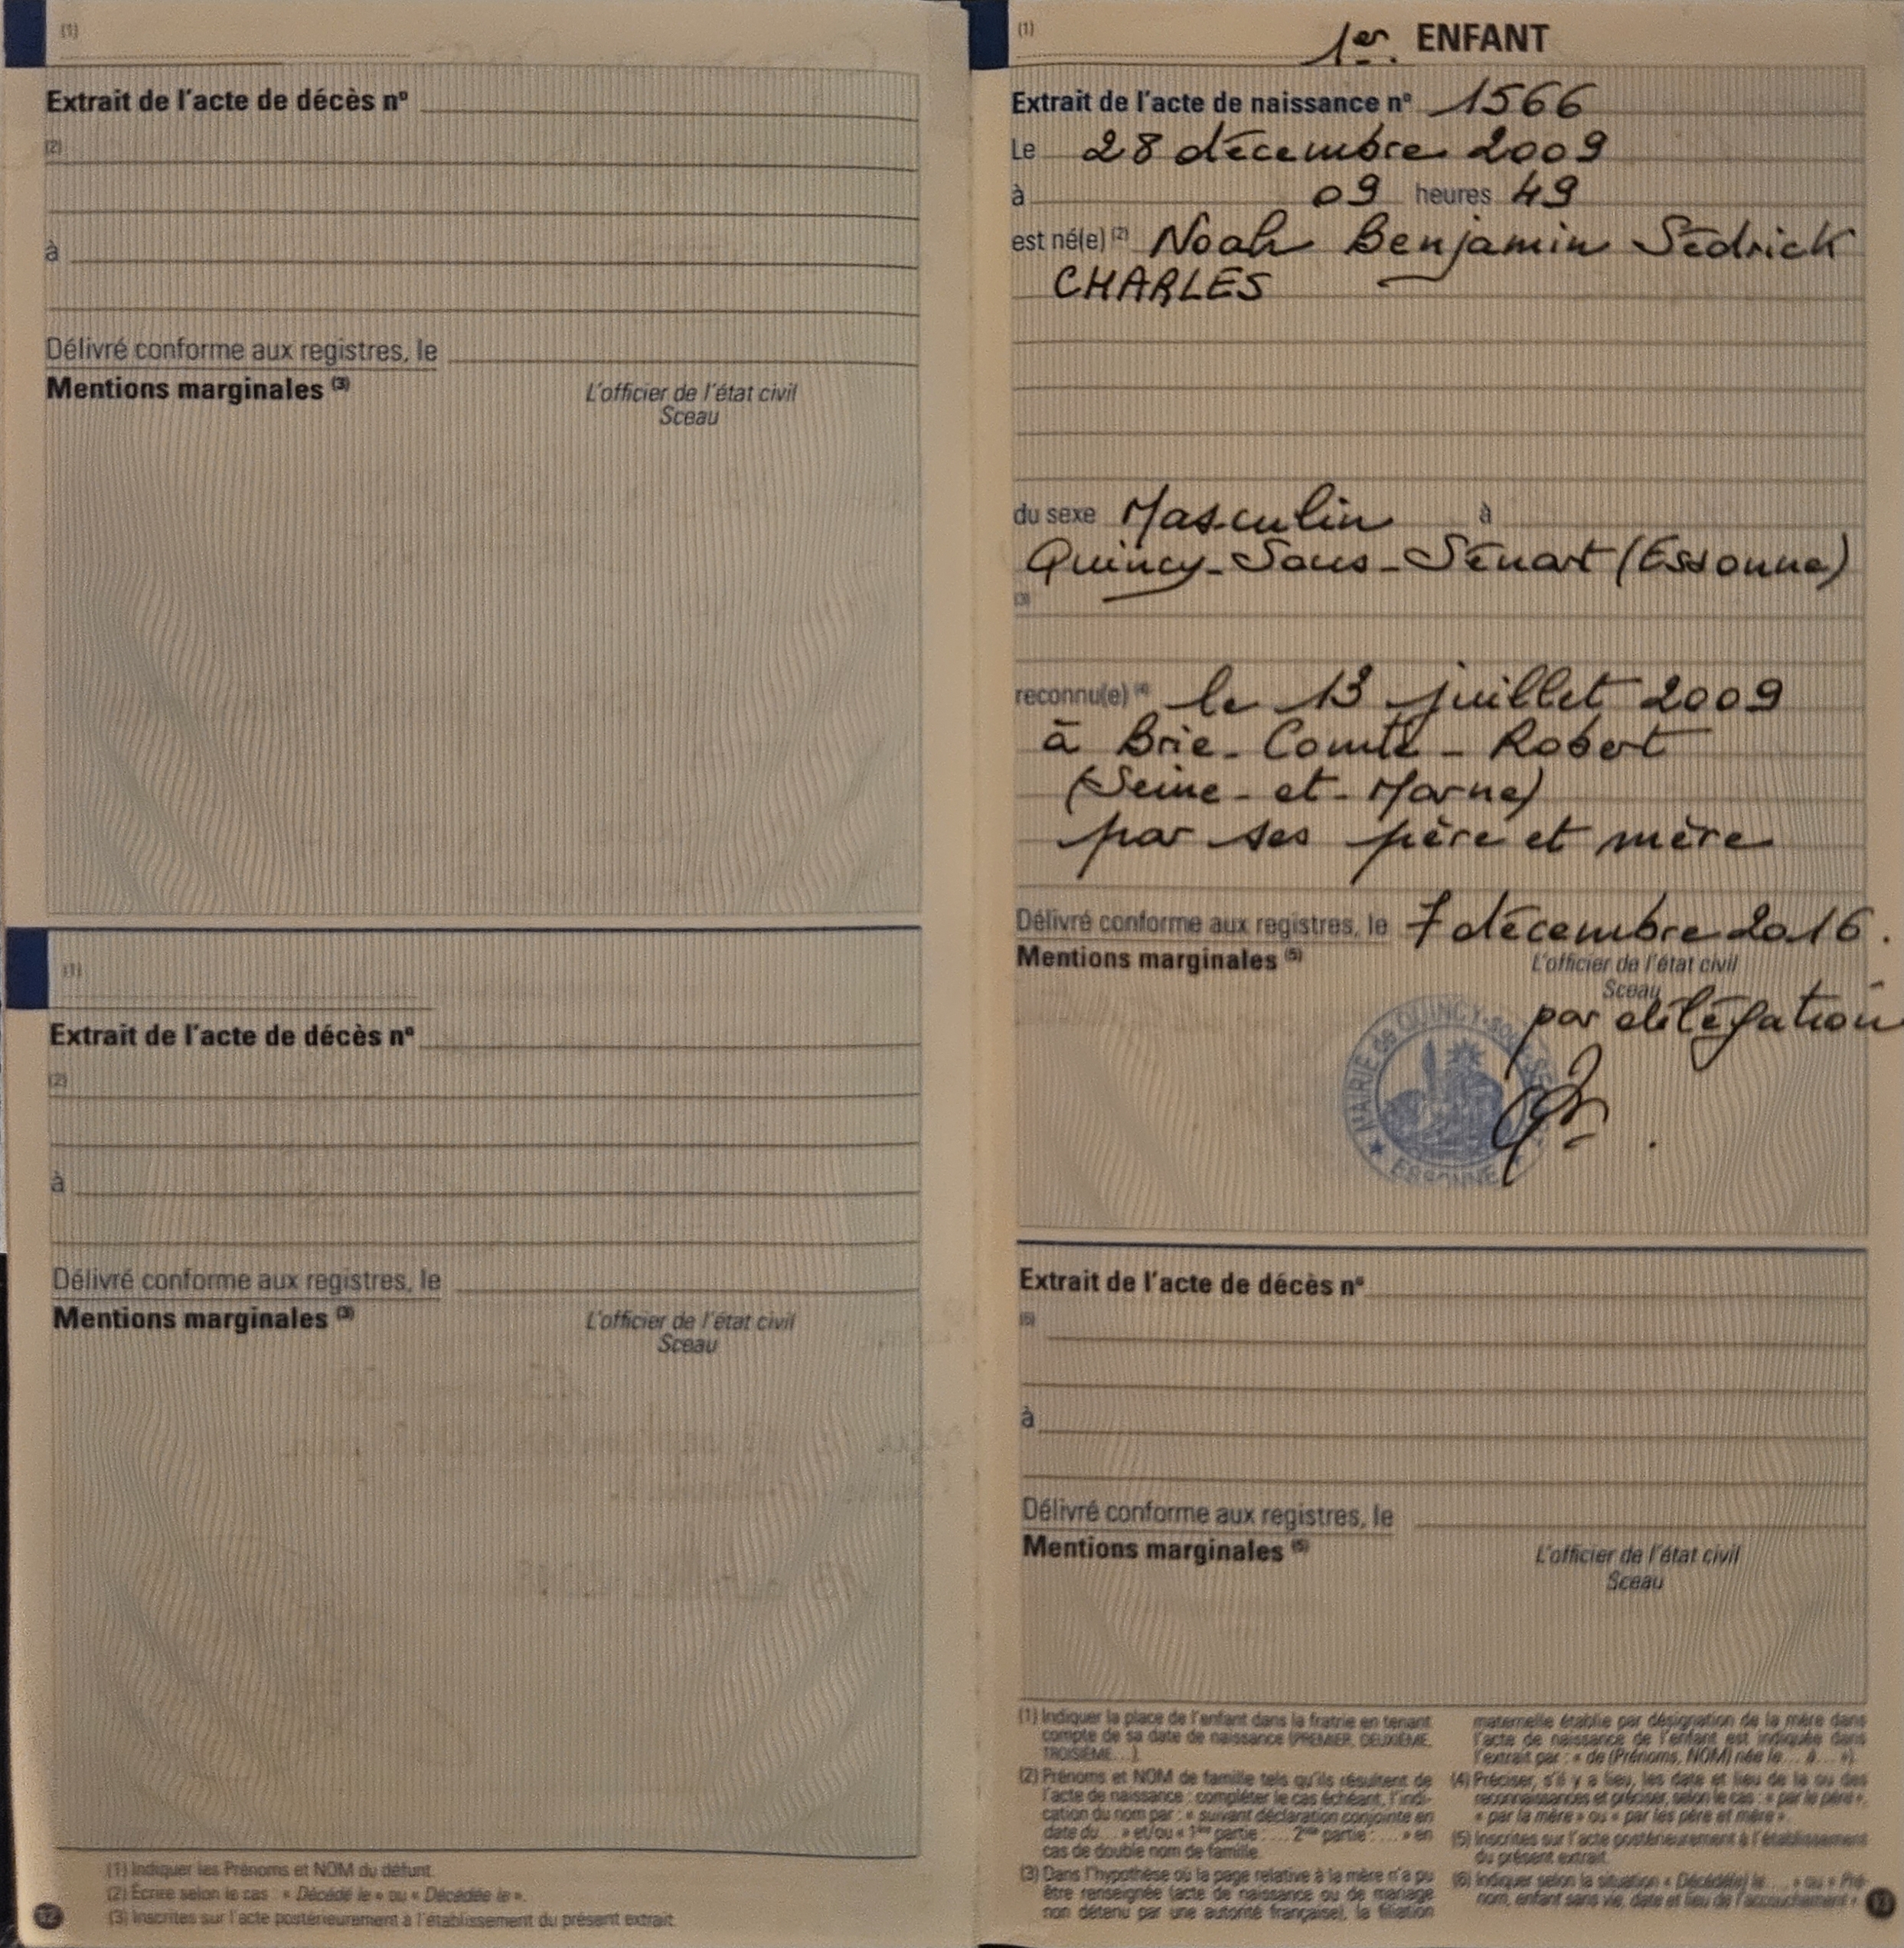 (1)
Extrait de l'acte de décès n°
(2)
à
Délivré conforme aux registres, le
Mentions marginales (3)
L'officier de l'état civil
Sceau
(1)
Extrait de l'acte de décès n°
(2)
à
Délivré conforme aux registres, le
Mentions marginales (3)
L'officier de l'état civil
Sceau
(1) Indiquer les Prénoms et NOM du défunt.
(2) Écrire selon le cas : « Décédé le » ou « Décédée le ».
(3) Inscrites sur l'acte postérieurement à l'établissement du présent extrait.
12
(1)
1er. ENFANT
Extrait de l'acte de naissance n° 1566
Le 28 décembre 2009
à 09 heures 49
est né(e) (2) Noah Benjamin Sédrick
CHARLES
du sexe Masculin à
Quincy-Sous-Sénart (Essonne)
(3)
reconnu(e) (4) le 13 juillet 2009
à Brie-Comte-Robert
(Seine-et-Marne)
par ses père et mère
Délivré conforme aux registres, le 7 décembre 2016.
Mentions marginales (5)
L'officier de l'état civil
Sceau
par délégation
MAIRIE de QUINCY-sous-
ESSONNE
Extrait de l'acte de décès n°
(6)
à
Délivré conforme aux registres, le
Mentions marginales (5)
L'officier de l'état civil
Sceau
(1) Indiquer la place de l'enfant dans la fratrie en tenant
compte de sa date de naissance (PREMIER, DEUXIÈME,
TROISIÈME...).
(2) Prénoms et NOM de famille tels qu'ils résultent de
l'acte de naissance : compléter le cas échéant, l'indi-
cation du nom par : « suivant déclaration conjointe en
date du ... » et/ou « 1ère partie : .... 2nde partie : .... » en
cas de double nom de famille.
(3) Dans l'hypothèse où la page relative à la mère n'a pu
être renseignée (acte de naissance ou de mariage
non détenu par une autorité française), la filiation
maternelle établie par désignation de la mère dans
l'acte de naissance de l'enfant est indiquée dans
l'extrait par : « de (Prénoms, NOM) née le ... à ... »).
(4) Préciser, s'il y a lieu, les date et lieu de la ou des
reconnaissances et préciser, selon le cas : « par le père »,
« par la mère » ou « par les père et mère ».
(5) Inscrites sur l'acte postérieurement à l'établissement
du présent extrait.
(6) Indiquer selon la situation « Décédé(e) le ... » ou « Pré-
nom, enfant sans vie, date et lieu de l'accouchement ».
13